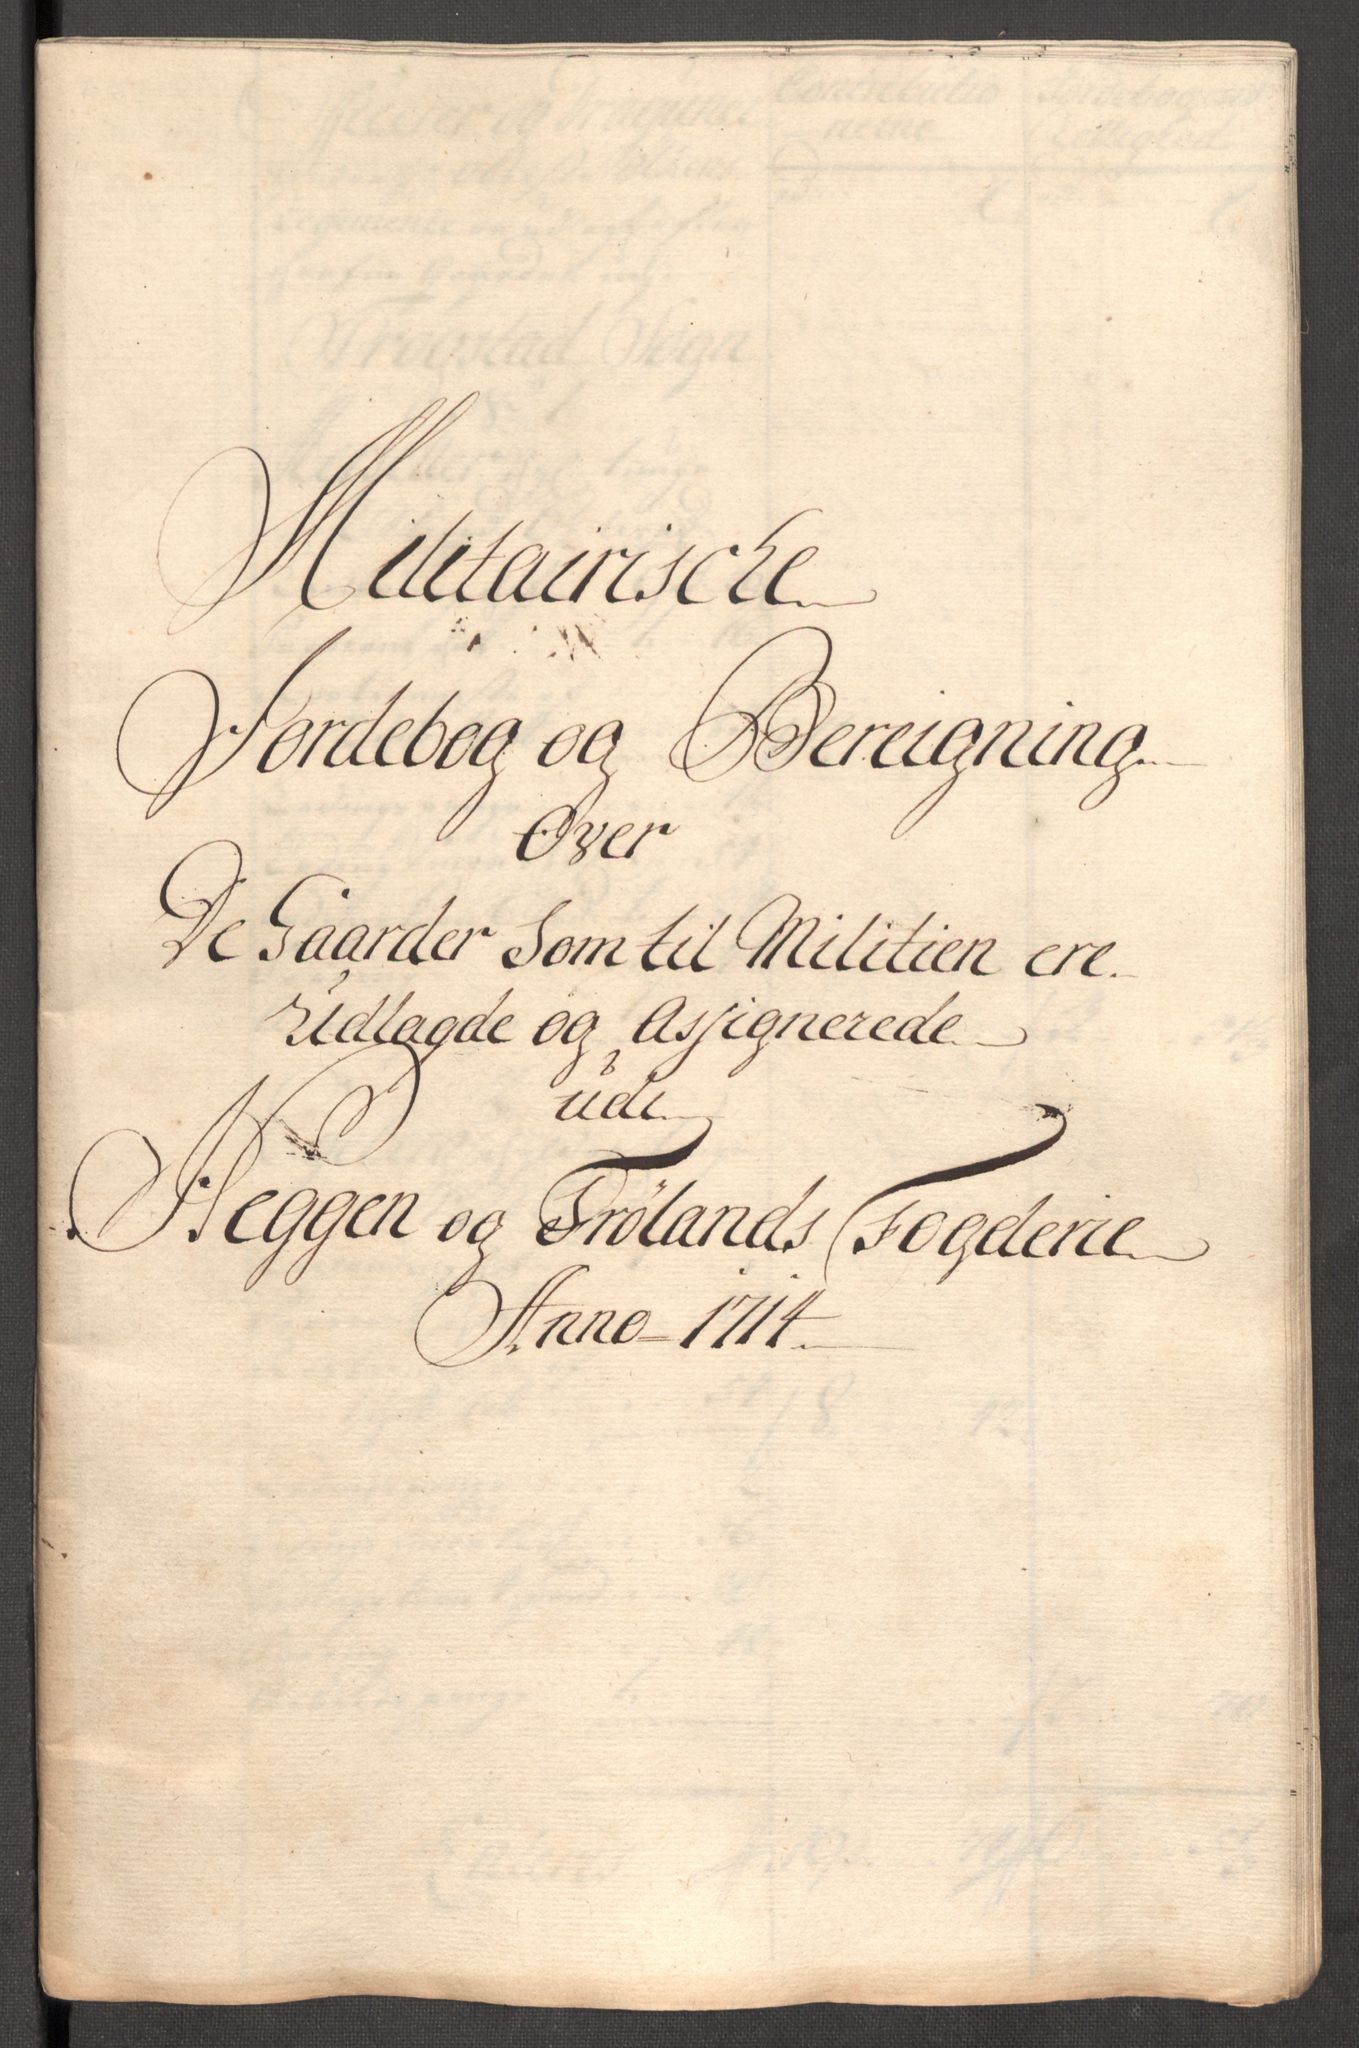 Militairische
Jordebog og Bereigning
Over
De Gaarder Som til Militien ere
Udlagde og Assignerede
udi
Heggen og Frölands Fogderie
Anno 1714